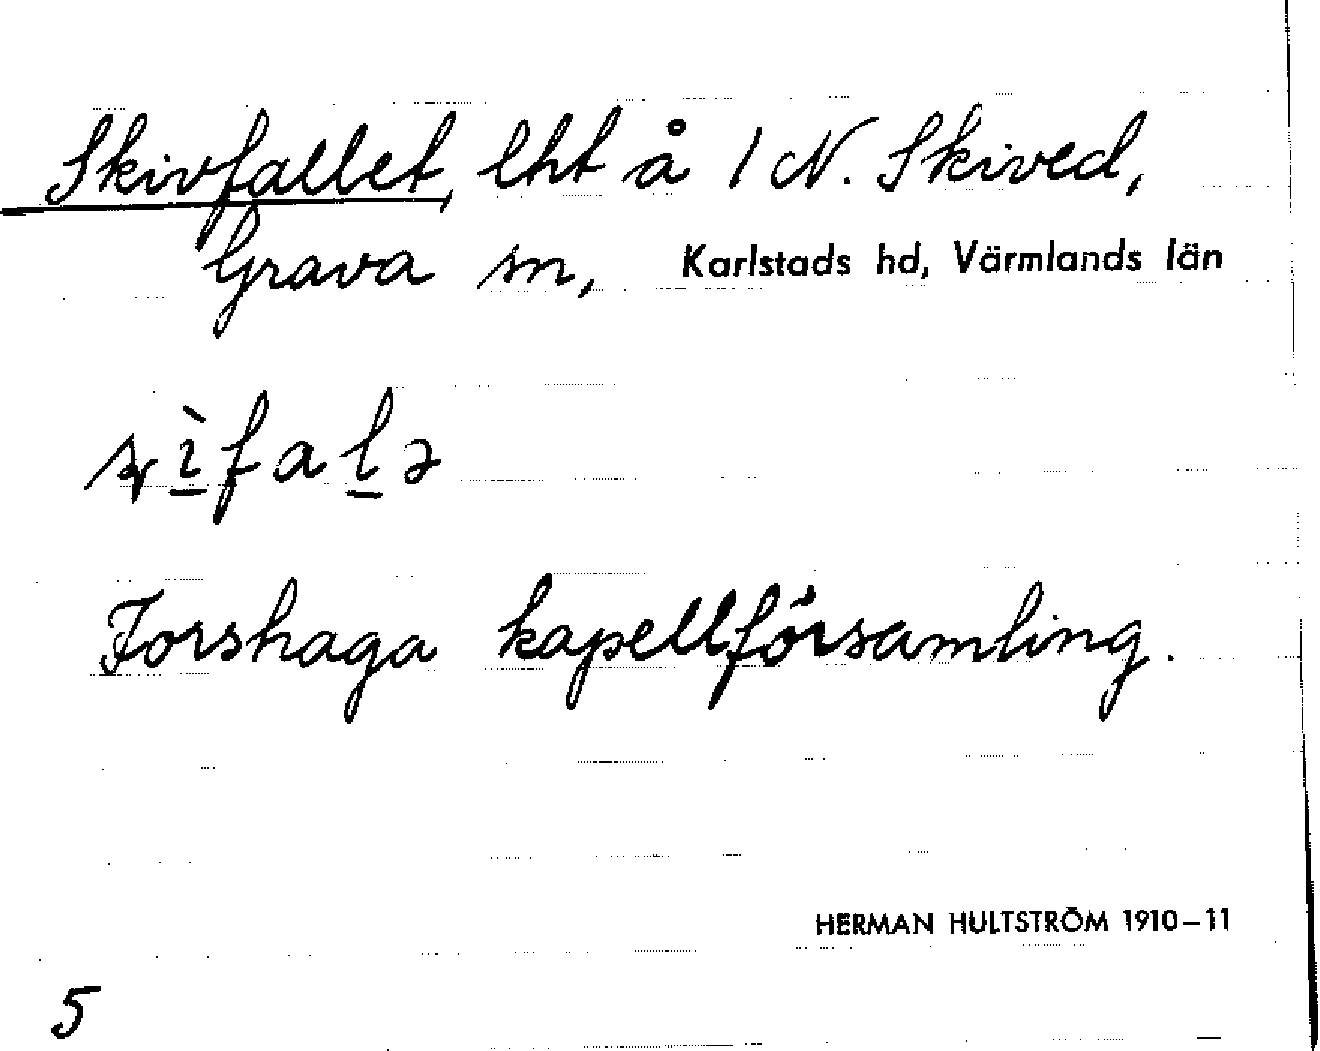 Skivfallet, lht å 1 N. Skived,
Grava sn, Karlstads hd, Värmlands län
Forshaga kapellförsamling.
HERMAN HULTSTRÖM 1910–11
5